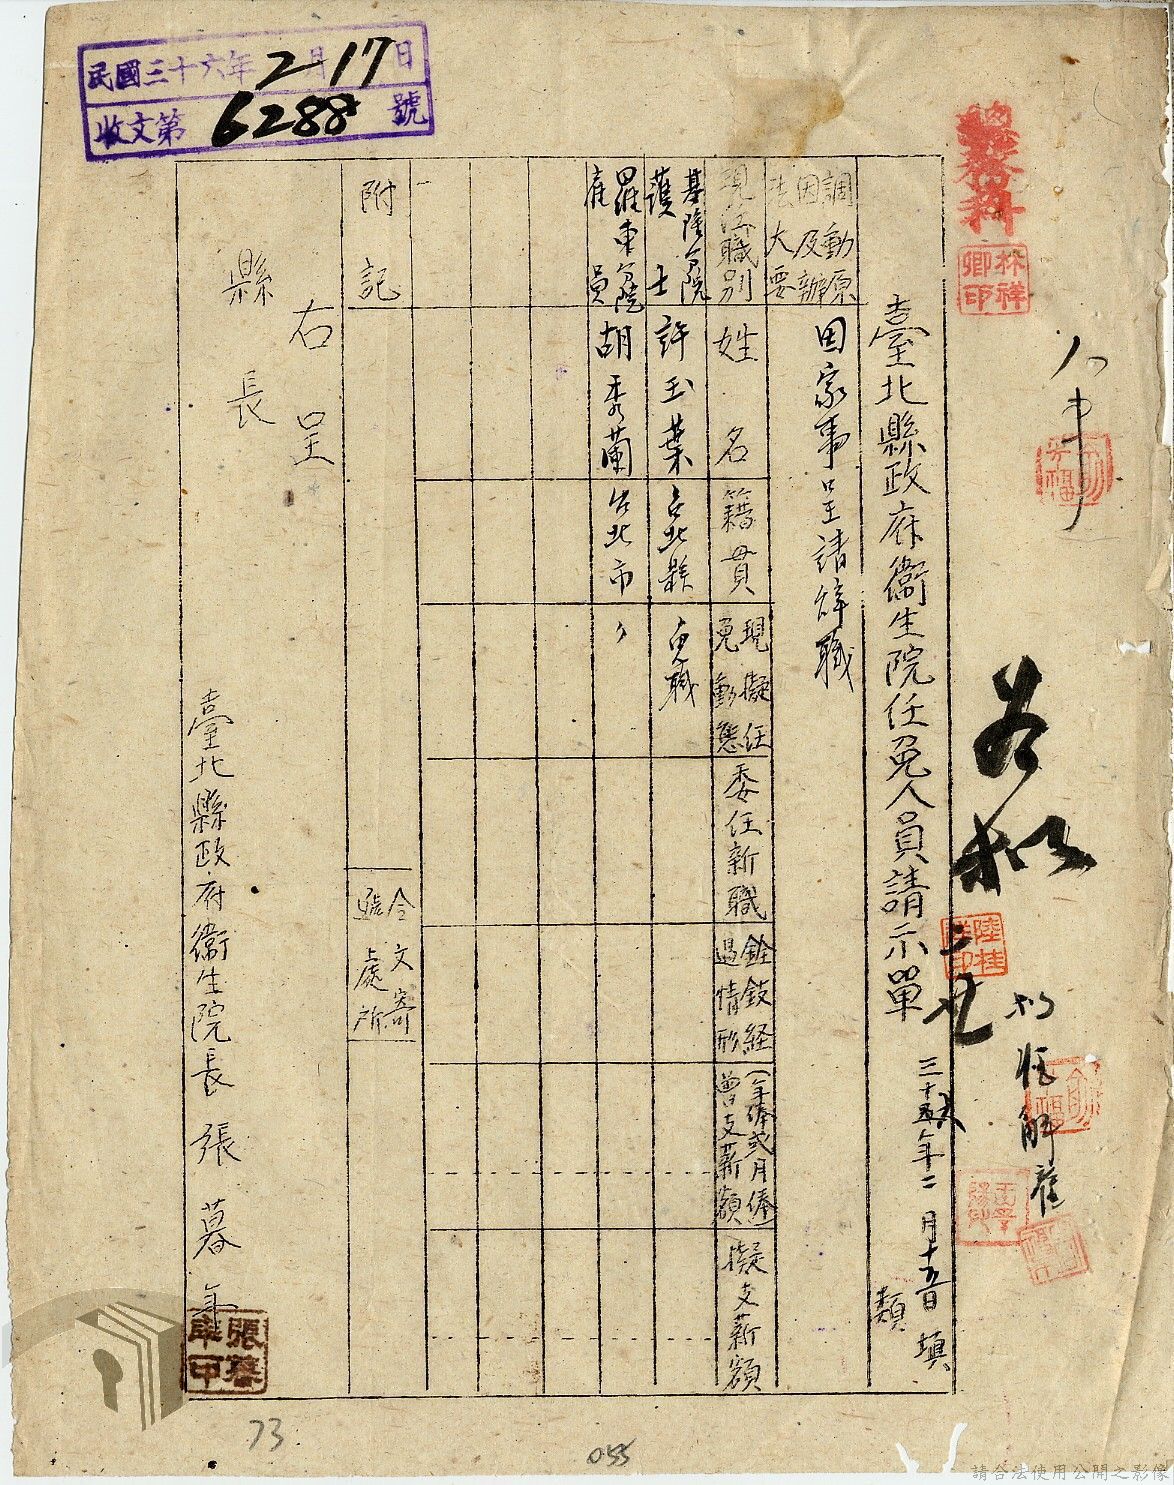 民國三十六年2月17日
收文第6288號
總務科
林祥卿印
臺北縣政府衛生院任免人員請示單
三十六年二月十五日填
類
調動原因及辦法大要
因家事呈請辭職
現任職別
姓名
籍貫
現擬任免動態
委任新職
銓敍経過情形
曾支薪額(年俸或月俸)
擬支薪額
基隆分院護士
許玉葉
台北縣
免職
羅東分院雇員
胡秀蘭
台北市
〃
附記
令文寄遞處所
右呈
縣長
臺北縣政府衛生院長張暮年
張暮年印
如擬
陸桂祥印
擬准解雇
73
055
請合法使用公開之影像